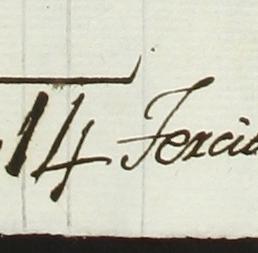 14 Fercia